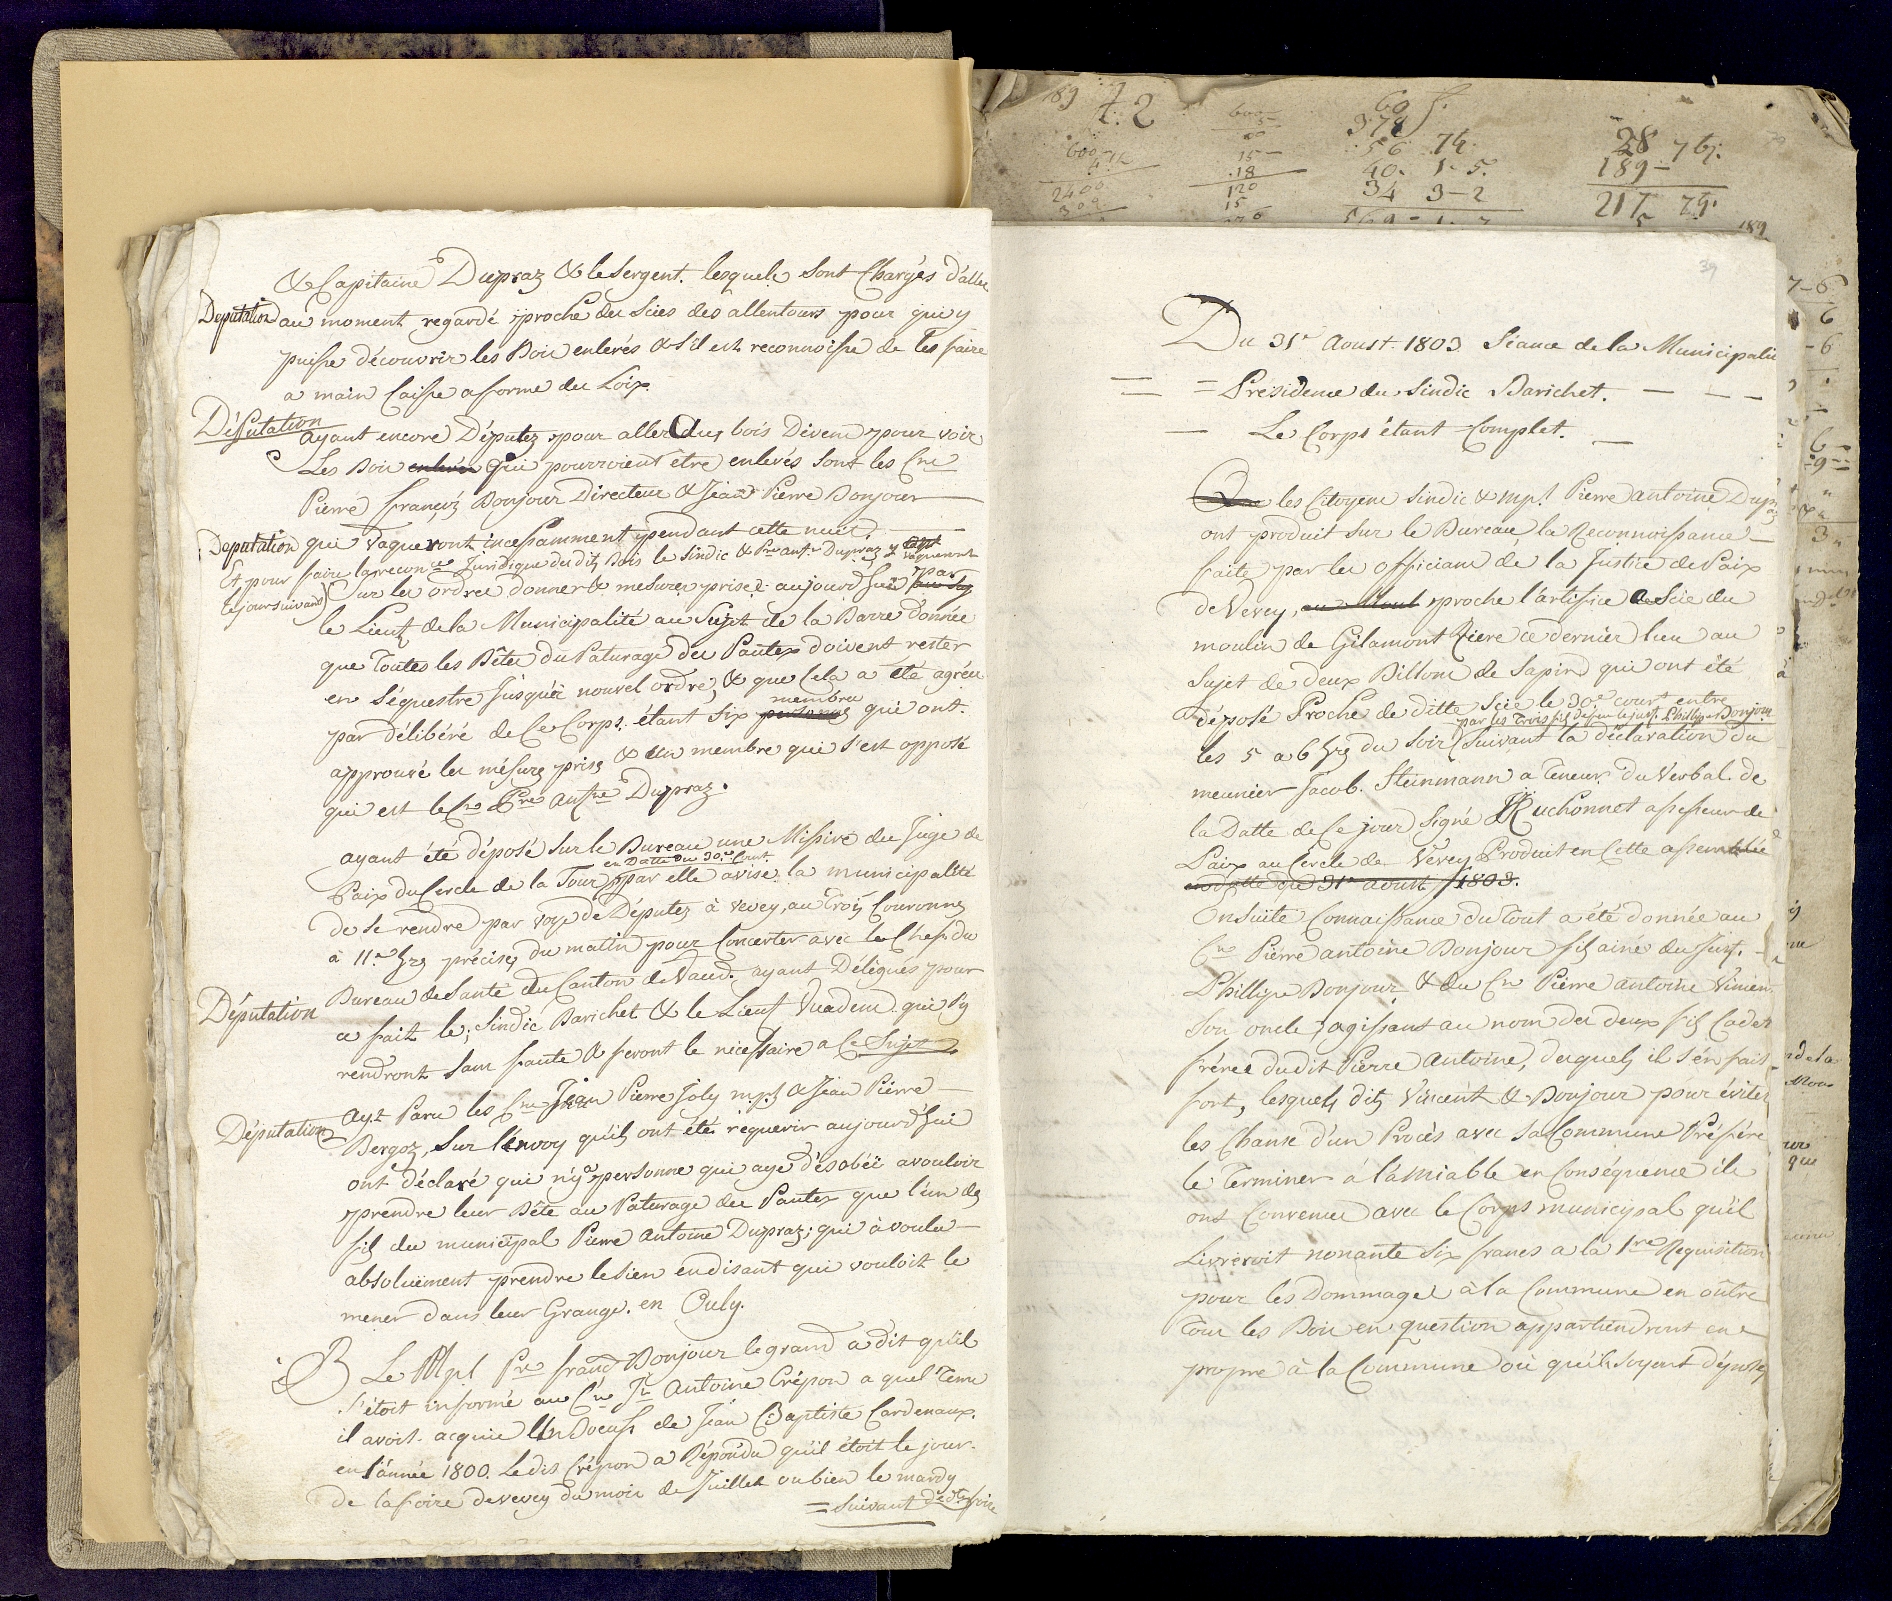 & Capitaine Dupraz & le Sergent. lesquels sont Chargés d'aller
Députation au moment regardé proche des Scies des allentours pour qui y
puisse découvrir les Bois enlevés & s'il est reconnoisse de les faire
a main laisse a forme des Loix.
Députation
ayant encore Députez pour aller aux bois Divens pour voir
Les Bois enlevés qui pourroient être enlevés sont les Cns
Pierre françs Bonjour Directeur & Jean Pierre Bonjour
Députation qui vaqueront incessamment pendant cette nuit,
Et pour faire la reconce Juridique du dits Bois le Sindic & Pre antne Dupraz y vaqueront
le jour suivant) Sur les ordres donner & mesures prises aujourd'hui par
le Lieut de la Municipalité au Sujet de la Barre donnée
que toutes les Bêtes du Paturage des Pautex doivent rester
en Séquestre Jusqu'à nouvel ordre, & que Cela a été agréé
membres
par délibéré de Ce Corps. étant six personnes qui ont.
approuvé les mésures prises & un membre qui s'est opposé
qui est le Cn Pre Antne Dupraz.
ayant été déposé Sur le Bureau une Missive du Juge de
en Datte du 30e Court
Paix du Cercle de la Tour, par elle avise la municipalité
de Se rendre par voye de Députez à Vevey, au Trois Couronnes
à 11e hrs précises du matin pour Concerter avec le Chef du
Bureau de Santé du Canton de Vaud. ayant Délégués pour
Députation
a fait le; Sindic Barichet & le Lieut Vuadens qui s'y
rendront Sans faute & feront le nécessaire a Ce Sujet
ayt Paru les Cns Jean Pierre Joly mpl & Jean Pierre
Députation
Bergoz, Sur l'envoy qu'ils ont été réquerir aujourd'hui
ont déclaré qui n'y a personne qui aye désobéï a vouloir
prendre leur Bête au Paturage des Pautex que l'un des
fils du municipal Pierre Antoine Dupraz; qui à voulu
absoluëment prendre le sien en disant qui vouloit le
mener dans leur Grange. en Ouly.
B Le Mpl Pre françs Bonjour le grand a dit qu'il
s'étoit informé au Cn Jn Antoine Crépon a quel Tems
il avoit. acquis Un Boeuf de Jean Baptiste Cardenaux.
en l'année 1800. Ledis Crépon a Répondu qu'il étoit le jour.
de la foire de Vevey du mois de Juillet ou bien le mardy
= Suivant de dte foire
39
Du 31e Aoust. 1803 Séance de la Municipalité
= = Présidence du Sindic Barichet. — — —
— Le Corps étant Complet. —
Que les Citoyens Sindic & mpl Pierre Antoine Dupraz
ont produit sur le Bureau la Reconnoissance
faite par les officiaux de la Justice de Paix
de Vevey, proche l'artifice de Scie du
moulin de Gilamont Rière ce dernier lieu au
Sujet de deux Billons de Sapin qui ont été
déposé Proche de ditte Scie le 30e court entre
par les Trois fils défeu le just. Phillipe Bonjour
les 5 a 6 hrs du Soir (Suivant la déclaration du
meunier Jacob. Steinmann a Teneur du Verbal. de
la Datte de Ce jour signé Ruchonnet assesseur de
Paix au Cercle de Vevey Produit en Cette assemblée
du 31e aoust 1803.
Ensuite Connaissance du Tout a été donnée au
Cn Pierre antoine Bonjour fils ainé du Just.
Phillipe Bonjour & du Cn Pierre antoine Vinien
Son oncle, agissant au nom des deux fils Cadet
fréres dudit Pierre Antoine, desquels il s'en fait
fort, lesquels dits Vincent & Bonjour pour éviter
les Chanse d'un Procès avec sa Commune Préfére
le Terminer à l'amiable en Conséquence ils
ont Convenus avec le Corps municypal qu'il
Livreroit nonante six francs a la 1re Requisition
pour les Dommages à la Commune en oûtre
Tous les Bois en question appartiendront en
propre à la Commune où qu'ils soyent déposez
189 42
600
2400
15
18
120
15
60 f.
378
56 74.
40. 1-5.
34 3-2
28 76j.
189-
217
189